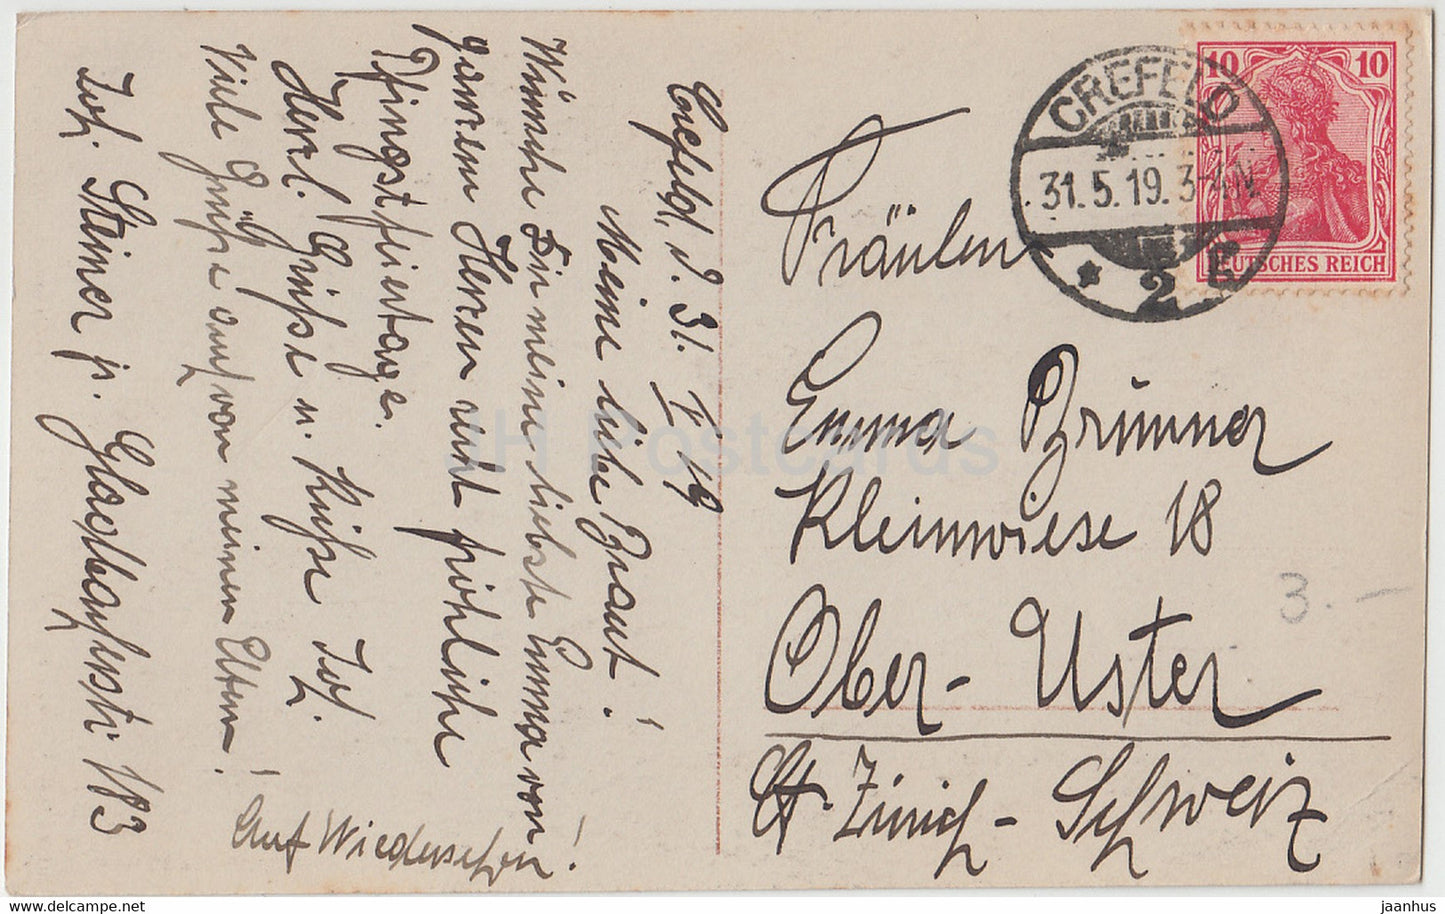 Crefeld, d. 31. V 19
Meine liebe Braut!
Wünsche Dir meine liebste Emma von
ganzem Herzen recht fröhliche
Pfingstfeiertage.
Herzl. Grüße u. Küße Jos.
Viele Grüße auch von meinen Eltern!
Auf Wiedersehen!
Jos. Steiner jr. Gladbacherstr. 183
CREFELD
31.5.19. 3-4 N
* 2
10 10
DEUTSCHES REICH
Fräulein
Emma Brunner
Kleinwiese 18
Ober-Uster
Kt. Zürich - Schweiz
3. -
JH Postcards
jaanhus — https://www.delcampe.net